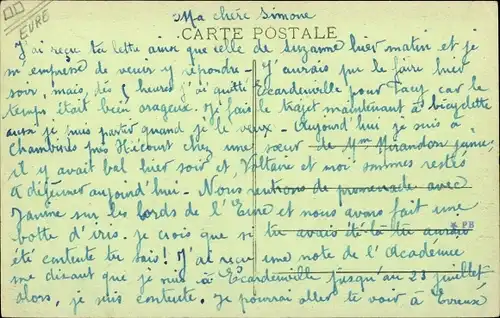 EURE
Ma chère Simone
CARTE POSTALE
J'ai reçu ta lettre ainsi que celle de Suzanne hier matin et je
m'empresse de venir y répondre - J'aurais pu le faire hier
soir, mais, dès 5 heures j'ai quitté Ecardenville pour Facy car le
temps était bien orageux. Je fais le trajet maintenant à bicyclette
aussi je puis partir quand je le veux - Aujourd'hui je suis à
Chambines près Hécourt chez une sœur de Mme Mirandon
il y avait bal hier soir et Voltaire et moi sommes restés
à déjeuner aujourd'hui - Nous rentrons de promenade avec
Janine sur les bords de l'Eure et nous avons fait une
botte d'iris. Je crois que si tu avais été là tu aurais
PB
été contente tu sais! J'ai reçu une note de l'Académie
me disant que je suis à Ecardenville jusqu'au 23 juillet
alors, je suis contente. Je pourrai aller te voir à Evreux